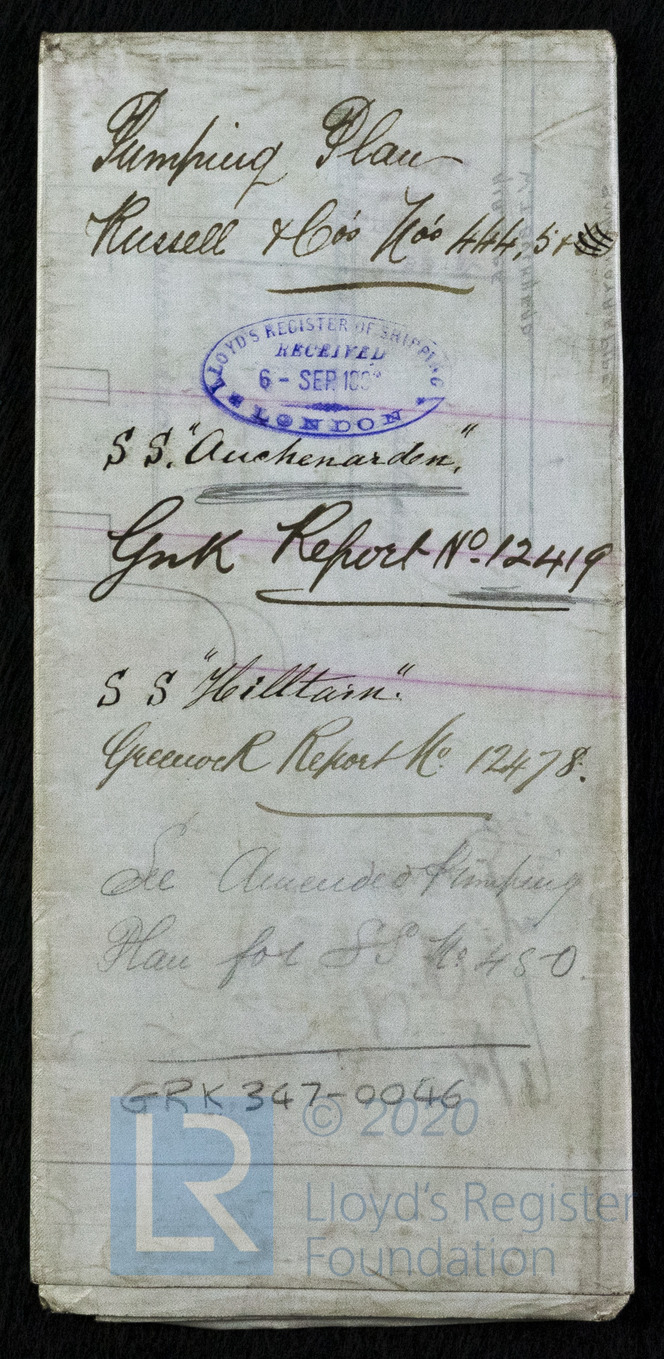 Pumping Plan
Russell & Co's No's 444, 5 &
LLOYD'S REGISTER OF SHIPPING
RECEIVED
6 - SEP 
LONDON
S S. "Auchenarden".
Gnk Report No. 12419
S S "Hilltarn".
Greenock Report No 12478.
See Amended Pumping
Plan for SS No 450.
GRK 347-0046
© 2020
LR
Lloyd's Register
Foundation